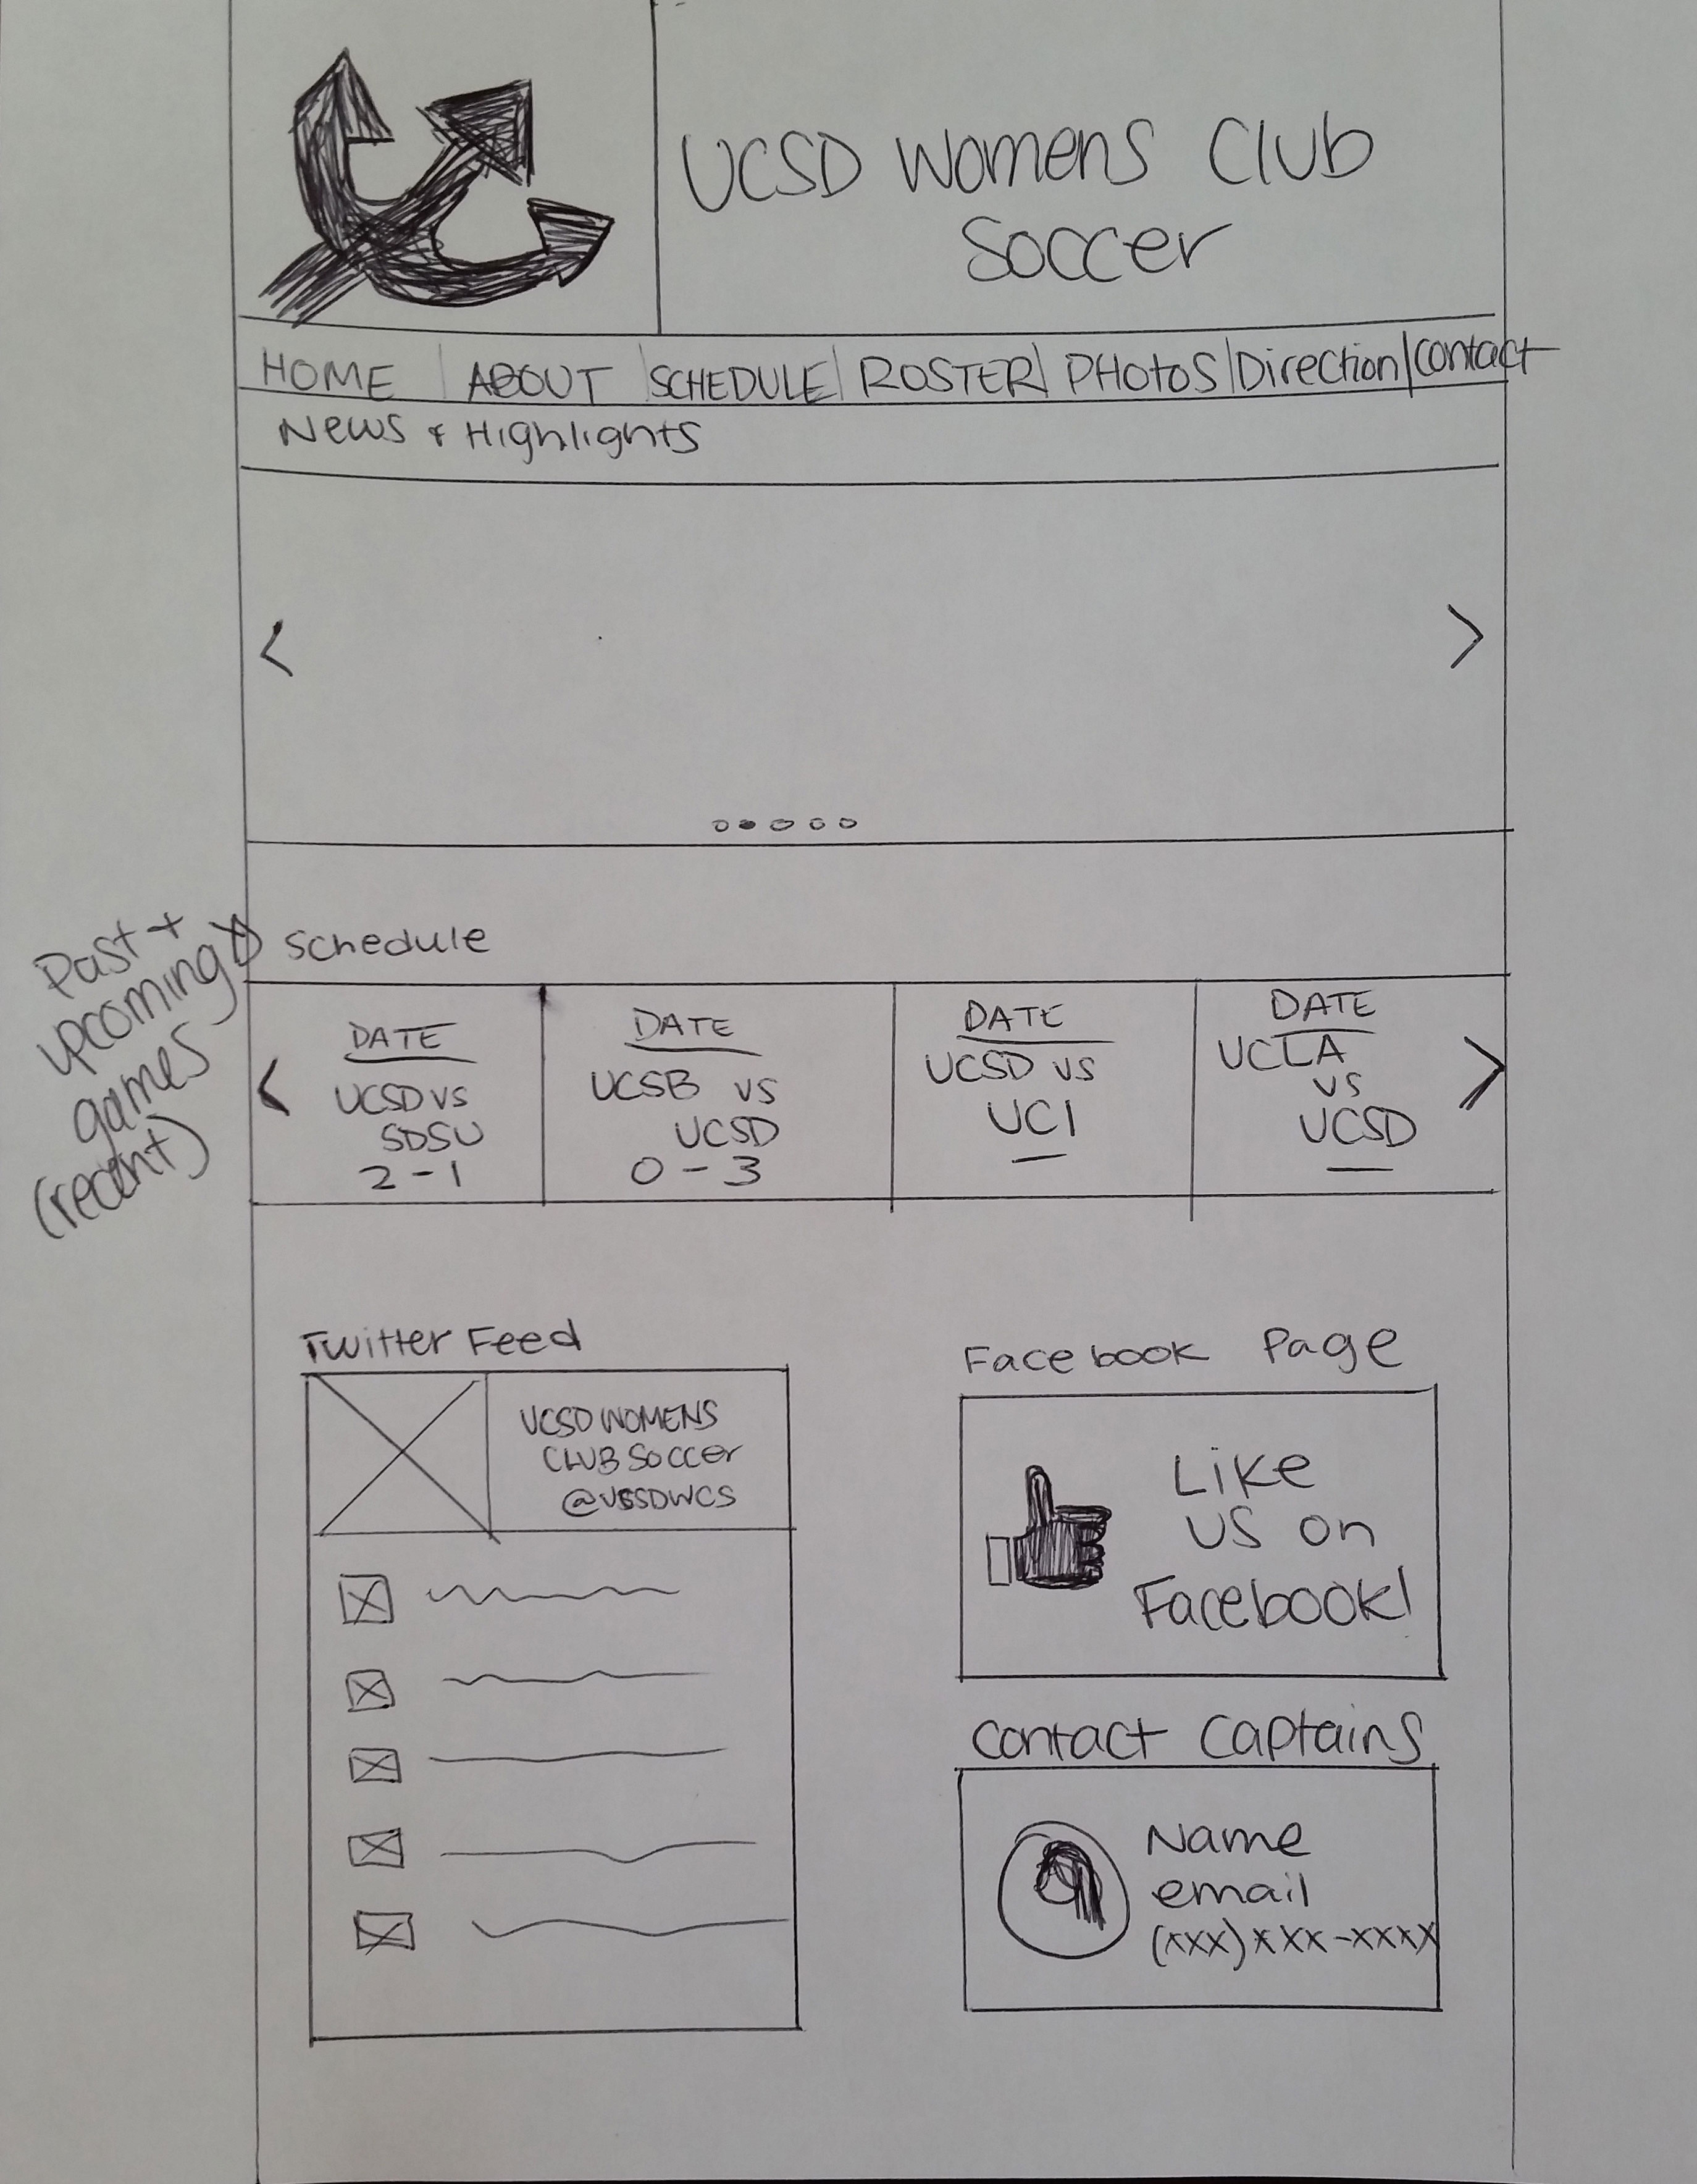 UCSD Womens Club
Soccer
HOME | ABOUT | SCHEDULE | ROSTER | PHOTOS | Direction | Contact
News & Highlights
<
>
Past +
upcoming
games
(recent)
Schedule
<
DATE
UCSD VS
SDSU
2-1
DATE
UCSB VS
UCSD
0-3
DATE
UCSD VS
UCI
—
DATE
UCLA
VS
UCSD
—
>
Twitter Feed
UCSD WOMENS
CLUB SOCCER
Facebook Page
Like
us on
Facebook!
Contact Captains
Name
email
(xxx) xxx-xxxx